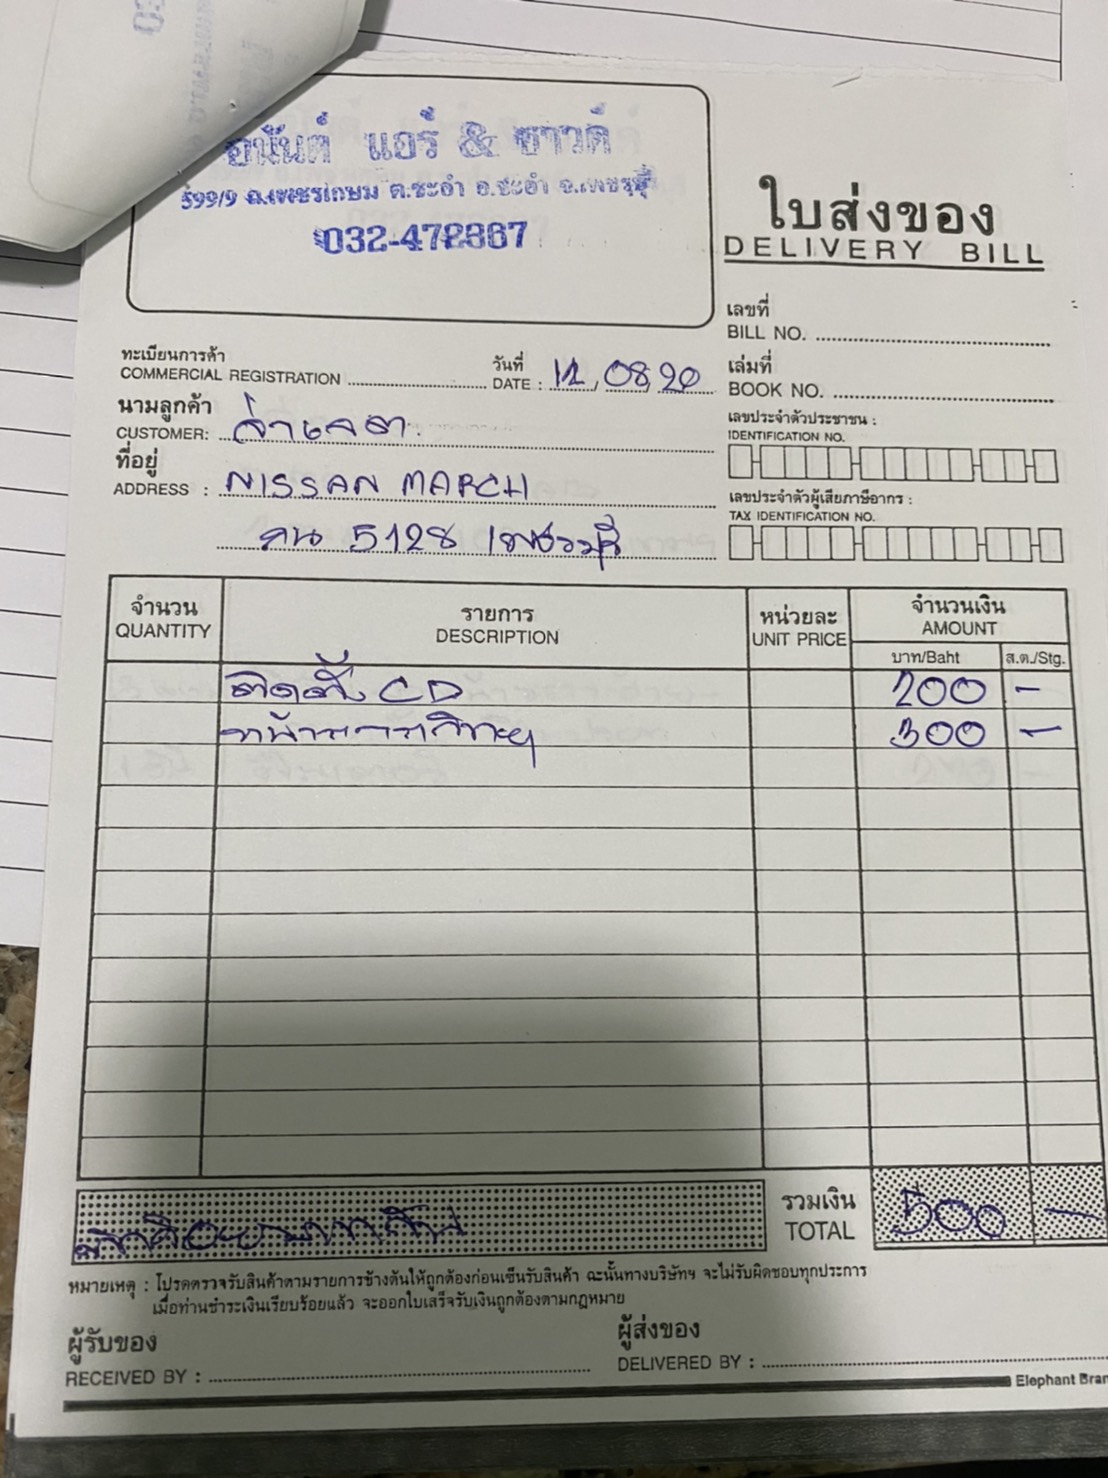 อนันต์ แอร์ & ซาวด์
599/9 ถ.เพชรเกษม ต.ชะอำ อ.ชะอำ จ.เพชรบุรี
032-472867
ใบส่งของ
DELIVERY BILL
เลขที่
BILL NO.
ทะเบียนการค้า
COMMERCIAL REGISTRATION
วันที่
DATE : 12, 08, 20
เล่มที่
BOOK NO.
นามลูกค้า
CUSTOMER:
เลขประจำตัวประชาชน :
IDENTIFICATION NO.
ที่อยู่
ADDRESS : NISSAN MARCH
5128 เพชรบุรี
เลขประจำตัวผู้เสียภาษีอากร :
TAX IDENTIFICATION NO.
จำนวน รายการ หน่วยละ จำนวนเงิน
QUANTITY DESCRIPTION UNIT PRICE AMOUNT
บาท/Baht ส.ต./Stg.
ติดตั้ง CD 200 -
300 -
ห้าร้อยบาทถ้วน
รวมเงิน
TOTAL 500 -
หมายเหตุ : โปรดตรวจรับสินค้าตามรายการข้างต้นให้ถูกต้องก่อนเซ็นรับสินค้า ฉะนั้นทางบริษัทฯ จะไม่รับผิดชอบทุกประการ
เมื่อท่านชำระเงินเรียบร้อยแล้ว จะออกใบเสร็จรับเงินถูกต้องตามกฎหมาย
ผู้รับของ
RECEIVED BY :
ผู้ส่งของ
DELIVERED BY :
Elephant Bran